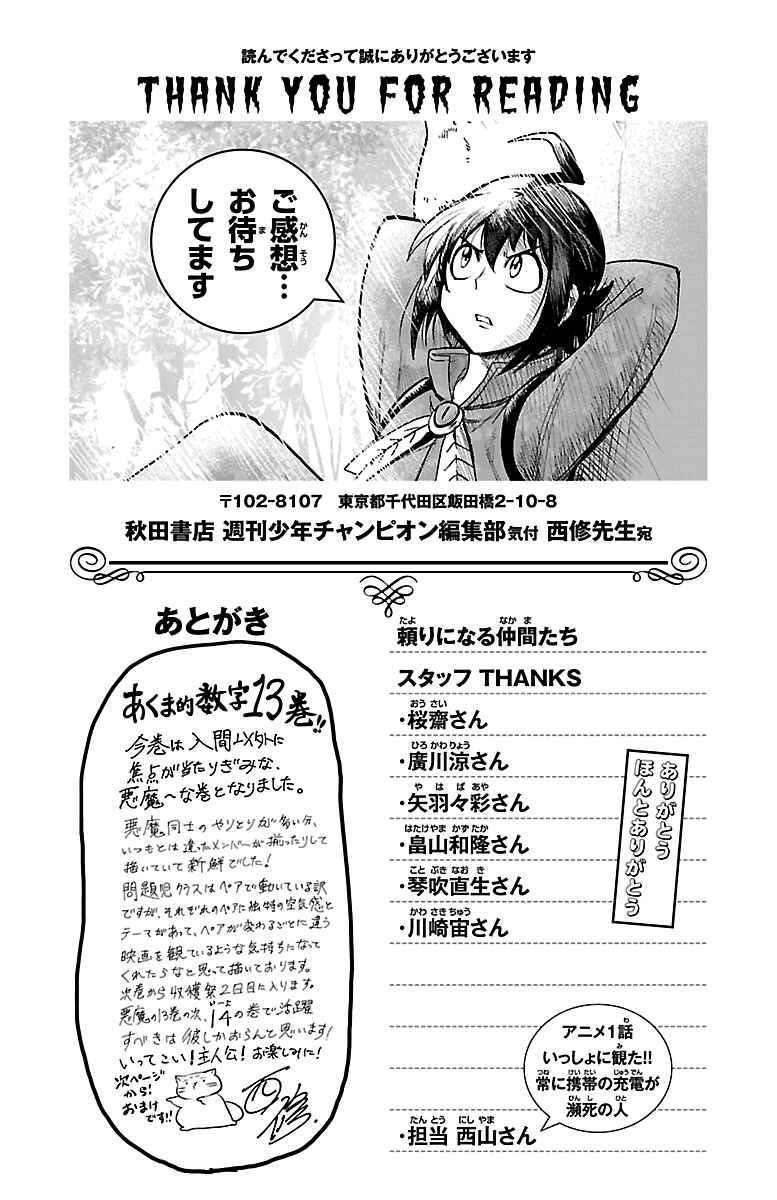 読んでくださって誠にありがとうございます
THANK YOU FOR READING
ご感想…
お待ち
してます
〒102-8107　東京都千代田区飯田橋2-10-8
秋田書店 週刊少年チャンピオン編集部気付 西修先生宛
あとがき
あくま的数字13巻!!
今巻は入間以外に
焦点が当たりぎみな、
悪魔〜な巻となりました。
悪魔同士のやりとりが多い分、
いつもとは違ったメンバーが揃ったりして
描いていて新鮮でした!
問題児クラスはペアで動いている訳
ですが、それぞれのペアに独特の空気感と
テーマがあって、ペアが変わるごとに違う
映画を観ているような気持ちになって
くれたらなと思って描いております。
次巻から収穫祭2日目に入ります。
悪魔の13巻の次、14の巻で活躍
すべきは彼しかおらんと思います!
いってこい!主人公!お楽しみに!
次ページ
から!
おまけ
です!!
西修
頼りになる仲間たち
スタッフ THANKS
・桜齋さん
・廣川涼さん
・矢羽々彩さん
・畠山和隆さん
・琴吹直生さん
・川崎宙さん
ありがとう
ほんとありがとう
アニメ1話
いっしょに観た!!
常に携帯の充電が
瀕死の人
・担当 西山さん